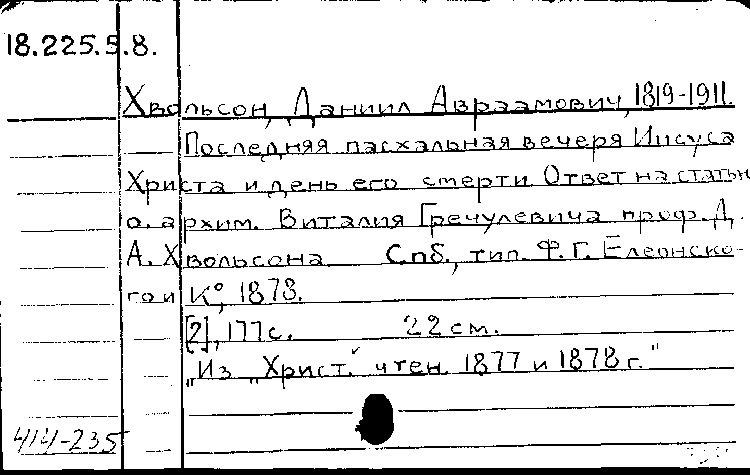 18.225.5.8.
Хвольсон, Даниил Авраамович, 1819-1911.
Последняя пасхальная вечеря Иисуса
Христа и день его смерти. Ответ на статьи
о. архим. Виталия Гречулевича проф. Д.
А. Хвольсона Спб., тип. Ф. Г. Елеонско-
го и К°, 1878.
[2], 177 с. 22 см.
"Из "Христ." чтен. 1877 и 1878 г."
414-235